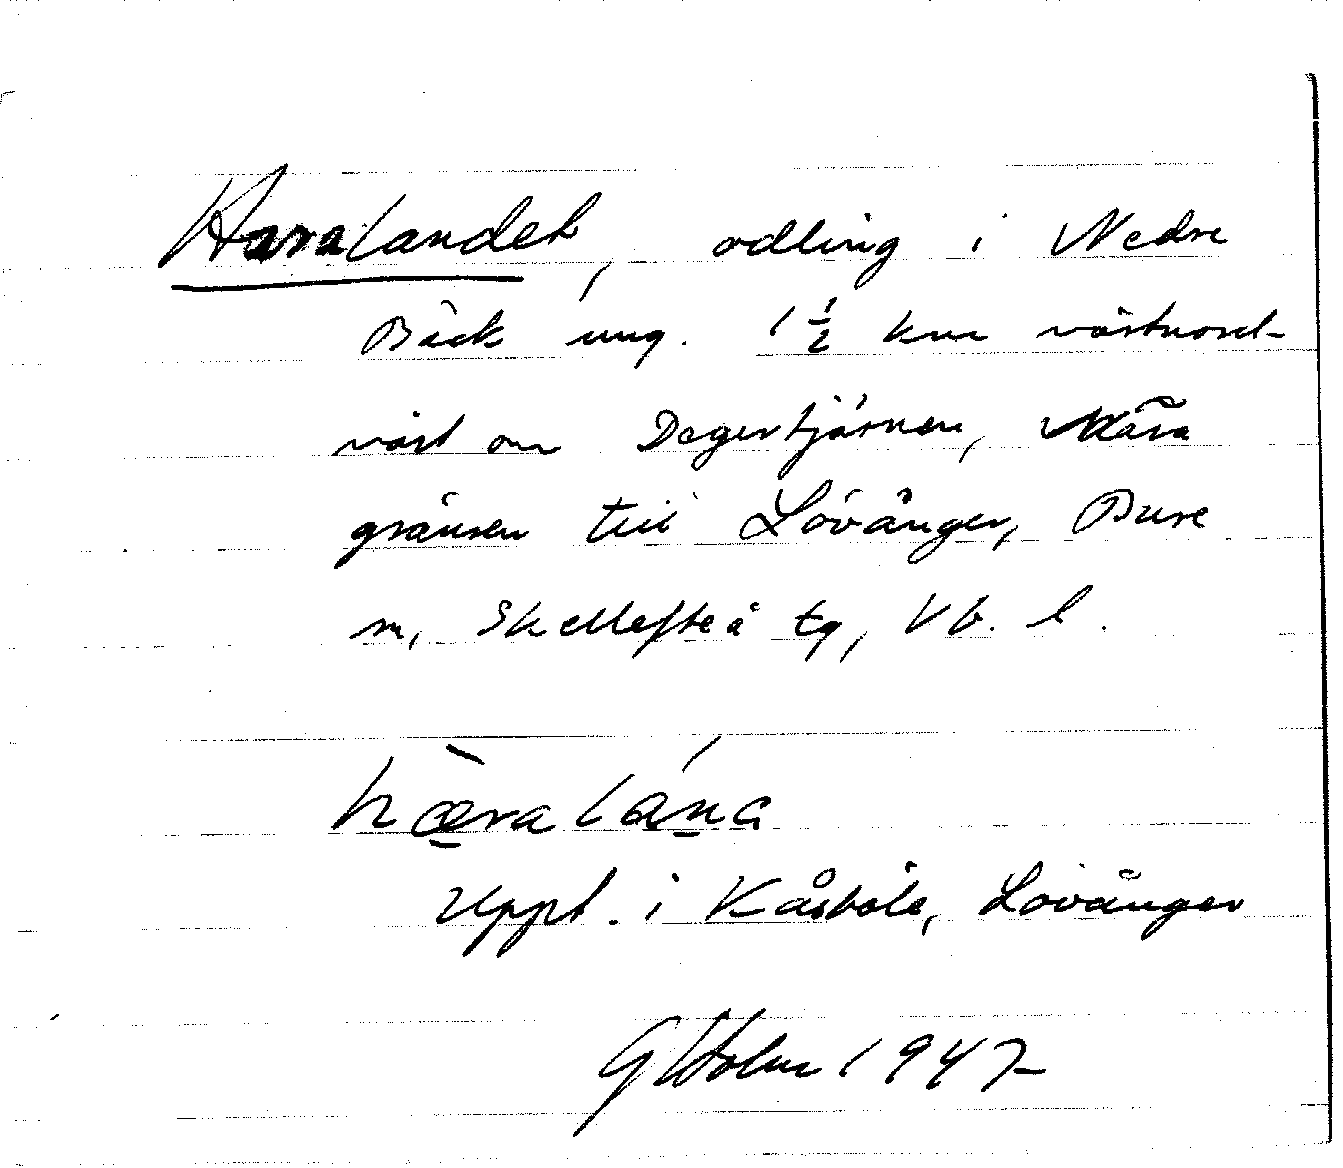 Haralandet, odling i Nedre
Bäck ung. 1 1/2 km västnord-
väst om Degertjärnen, Nära
gränsen till Lövånger, Bure
m, Skellefteå tg, Vb. l.
hæralána
Uppt. i Kåsböle, Lövånger
G Holm 1947